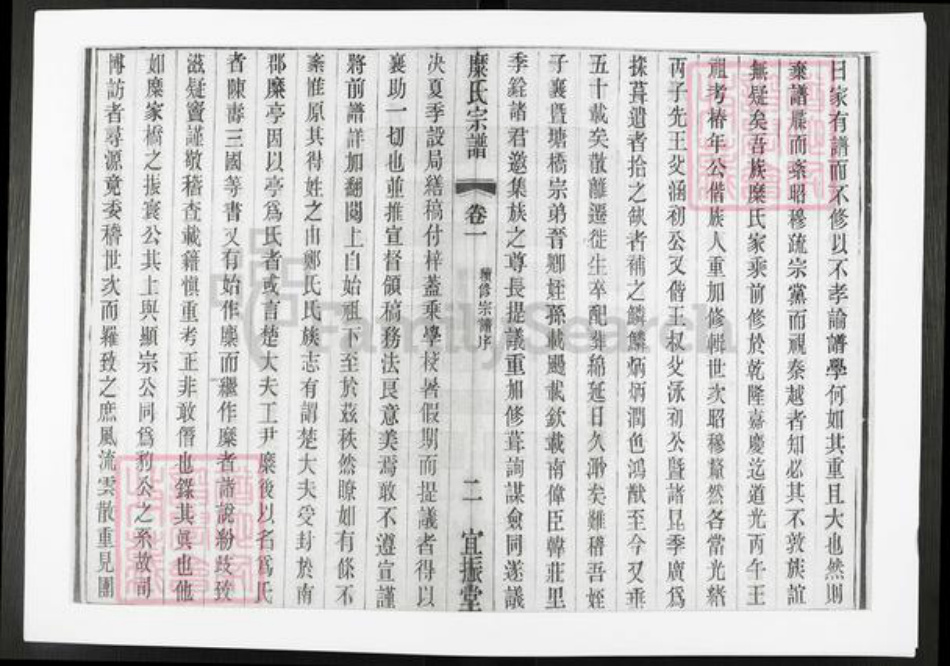 日家有譜而不修以不孝論譜學何如其重且大也然則
棄譜牒而紊昭穆疏宗黨而視秦越者知必其不敦族誼
無疑矣吾族糜氏家乘前修於乾隆嘉慶迄道光丙午王
祖考椿年公偕族人重加修輯世次昭穆釐然各當光緒
丙子先王父涵初公又偕王叔父泳初公暨諸昆季廣為
採葺遺者拾之缺者補之鱗鱗炳炳潤色鴻猷至今又垂
五十載矣散離遷徙生卒配葬綿延日久渺矣難稽吾姪
子襄暨塘橋宗弟晉卿姪孫載颺載欽載南偉臣韓莊里
季銓諸君邀集族之尊長提議重加修葺詢謀僉同遂議
糜氏宗譜 卷一 續修宗譜序 二 宜振堂
決夏季設局繕稿付梓蓋乘學校暑假期而提議者得以
襄助一切也並推宣督領稿務法良意美焉敢不遵宣謹
將前譜詳加翻閱上自始祖下至於茲秩然瞭如有條不
紊惟原其得姓之由鄭氏氏族志有謂楚大夫受封於南
郡糜亭因以亭為氏者或言楚大夫工尹糜後以名為氏
者陳壽三國等書又有始作麋而繼作糜者諸說紛歧致
滋疑竇謹敬稽查載籍慎重考正非敢僭也錄其眞也他
如糜家橋之振寰公其上與顯宗公同為豹公之系故司
博訪者尋源竟委稽世次而羅致之庶風流雲散重見團
FamilySearch